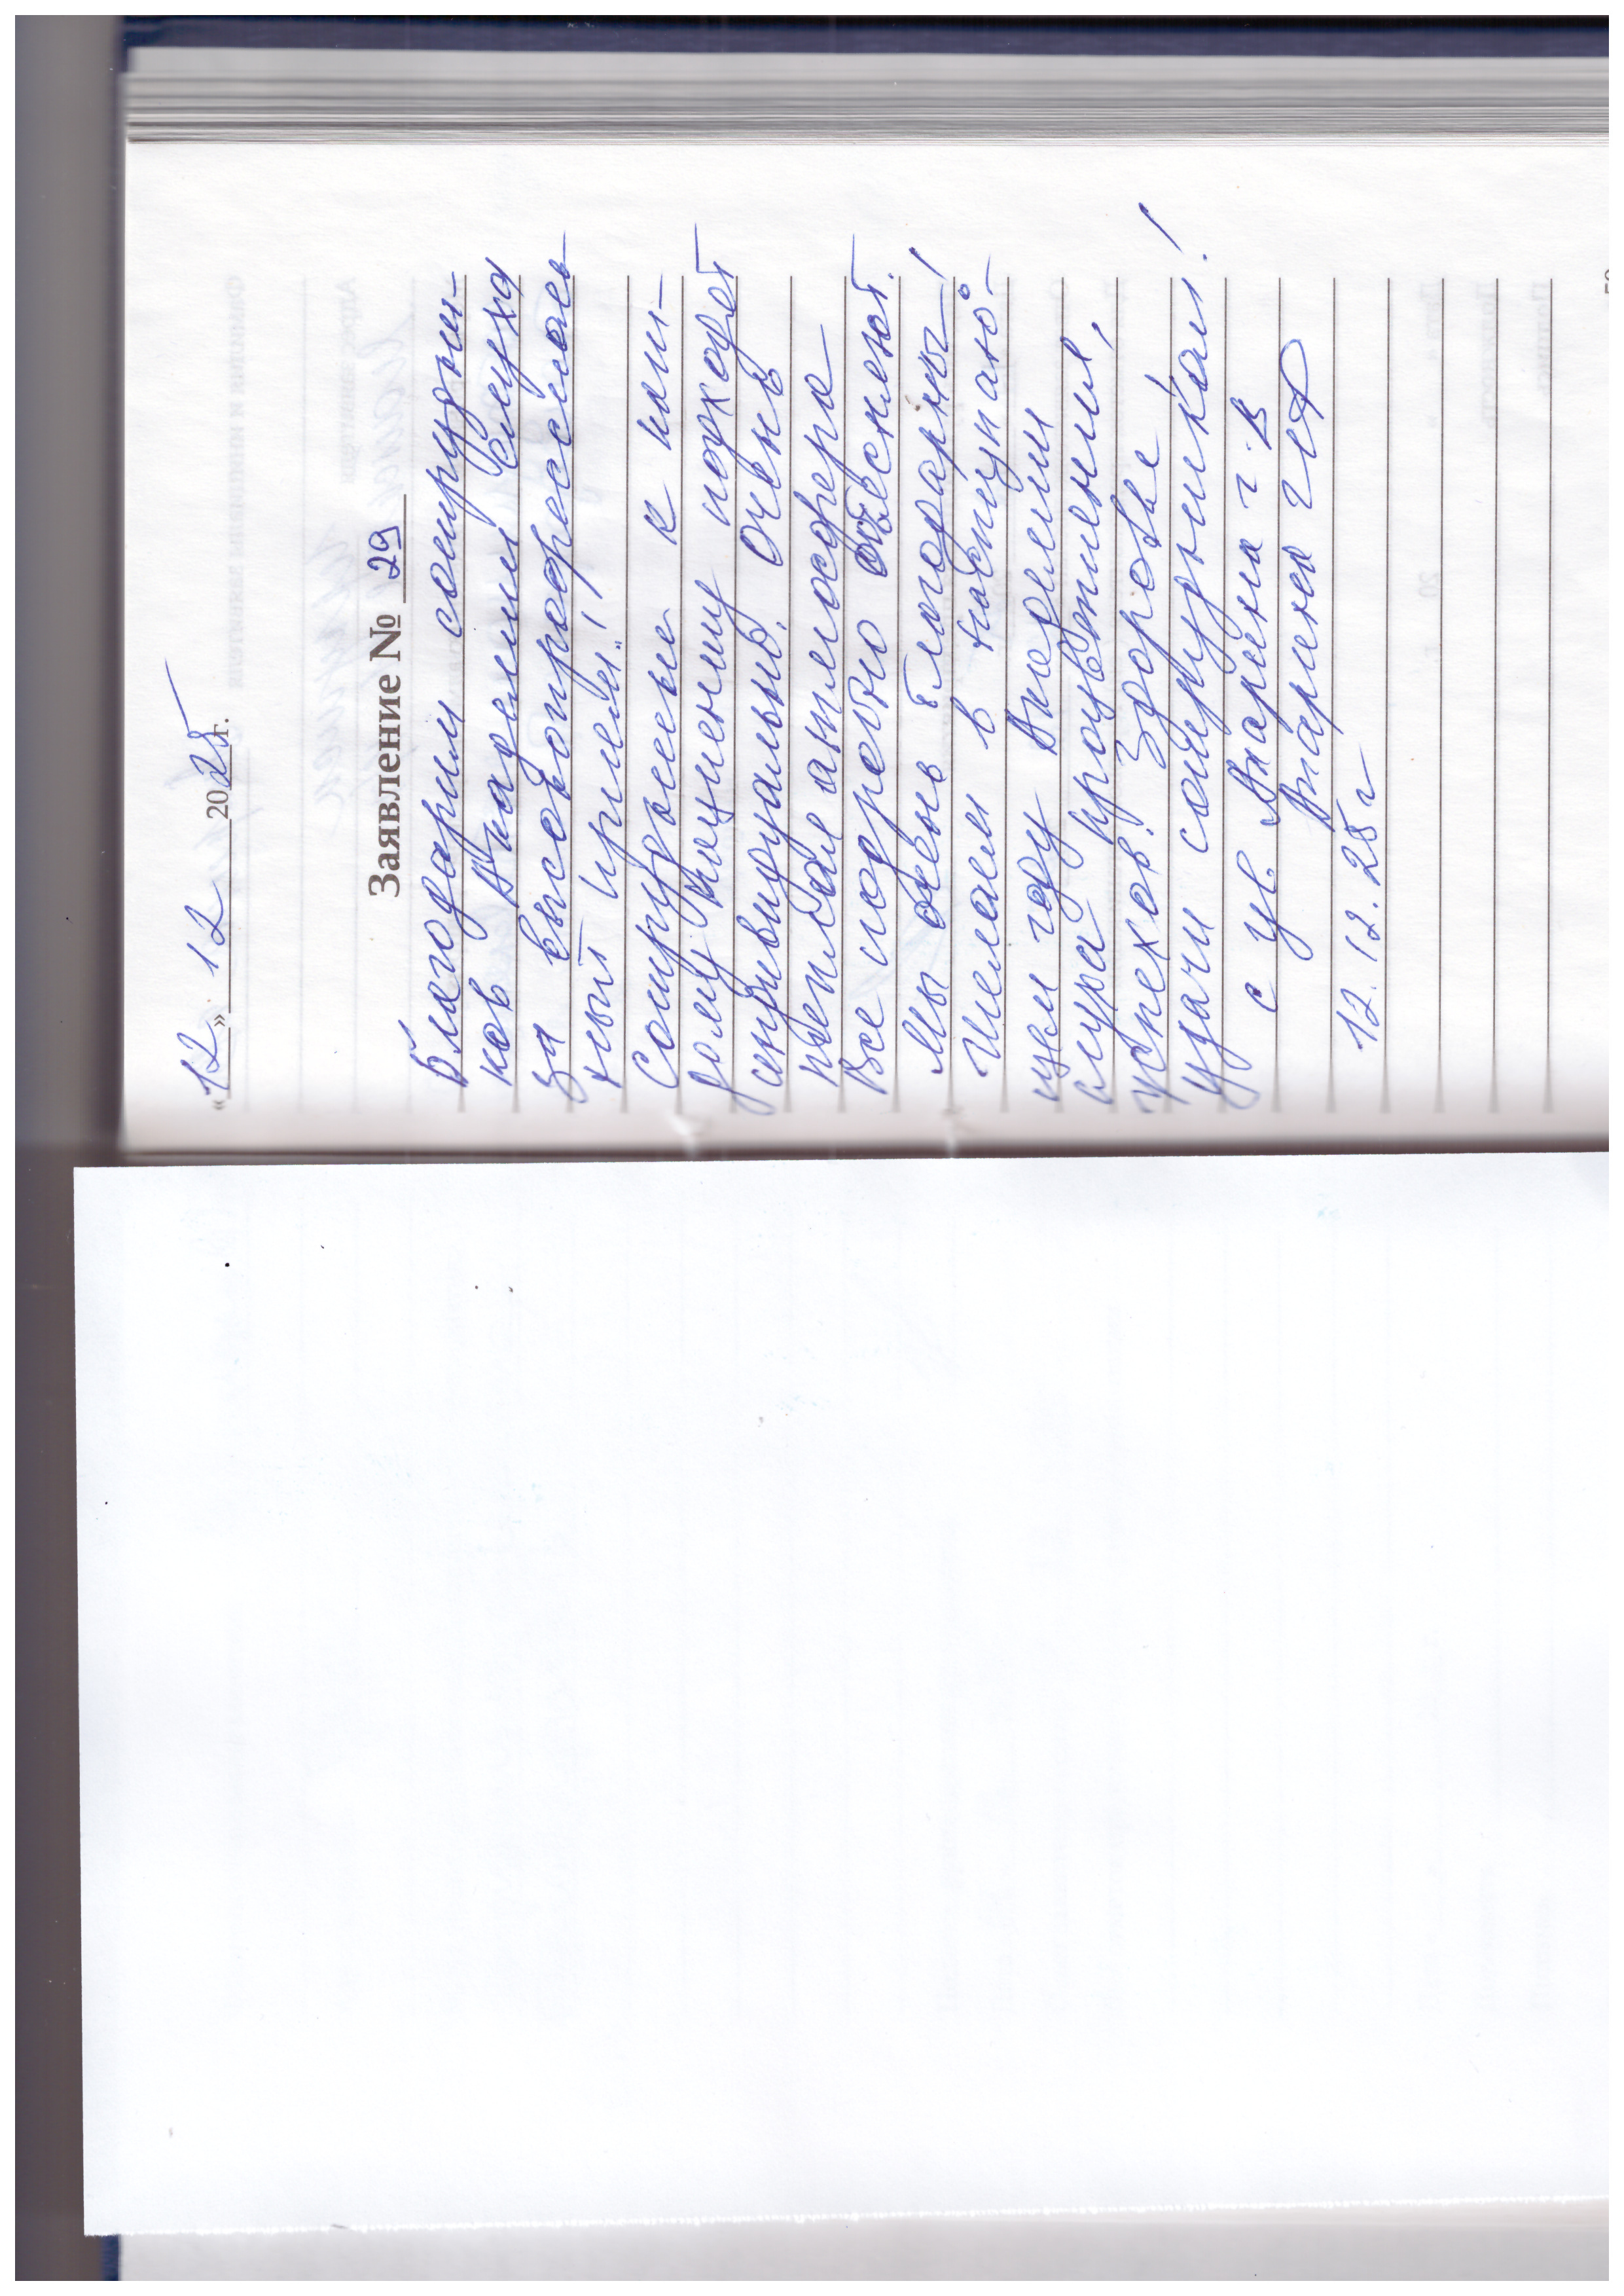 «12» 12 2025 г.
Заявление № 29
Благодарим сотрудни-
ков Академии слуха
за высокопрофессиональ
ный прием!
Сотрудники к каж-
дому пациенту подходят
индивидуально. Очень
теплая атмосфера
Все подробно объясняют.
Мы очень благодарны!
Желаем в наступаю-
щем году Академии
слуха процветания,
успехов! Здоровье
удачи сотрудникам!
с ув. Атарина г. В
Атарина
12.12.25 г